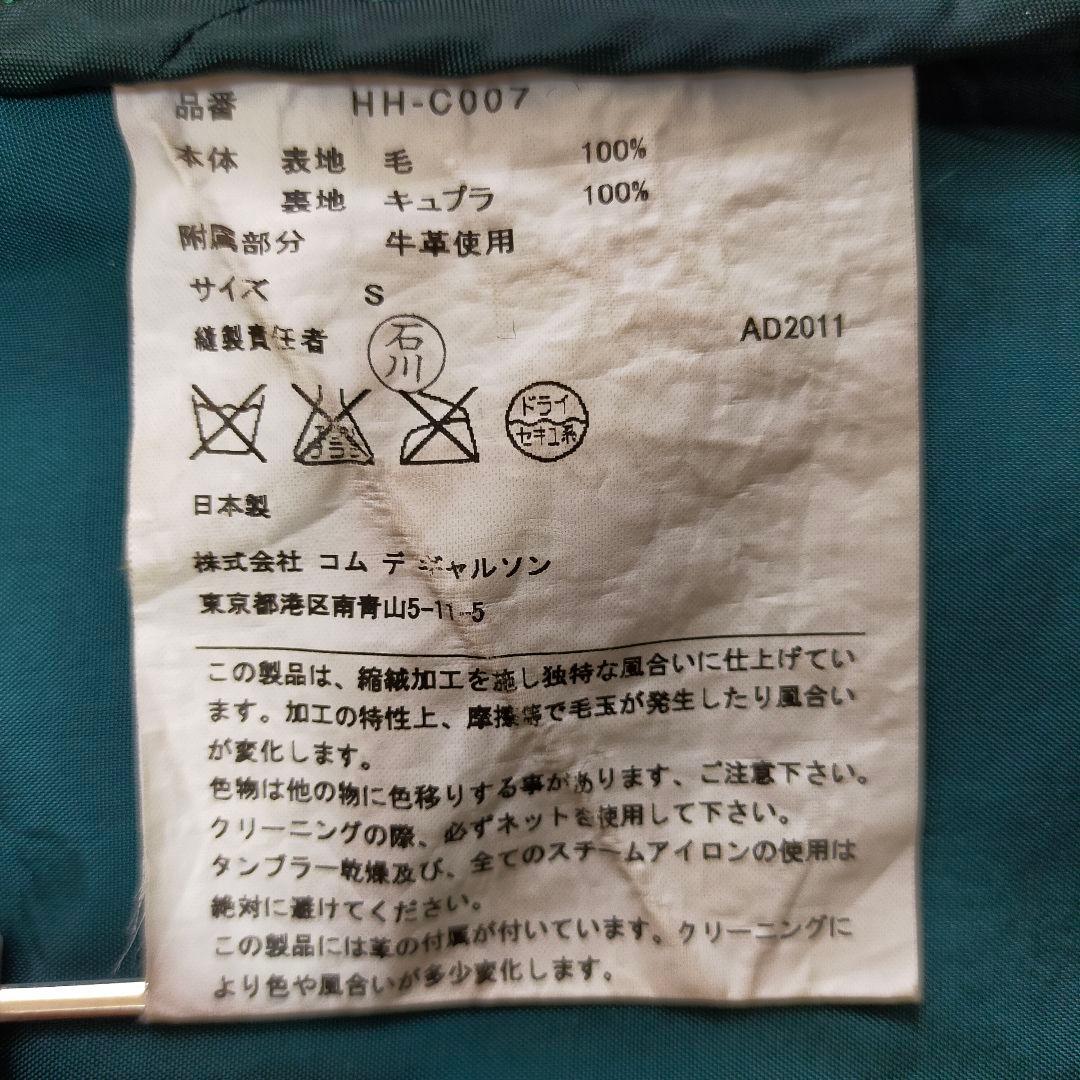 品番 HH-C007
本体 表地 毛 100%
裏地 キュプラ 100%
附属部分 牛革使用
サイズ S
縫製責任者 石川 AD2011
エンソサラシ ドライ セキユ系
日本製
株式会社 コム デ ギャルソン
東京都港区南青山5-11-5
この製品は、縮絨加工を施し独特な風合いに仕上げてい
ます。加工の特性上、摩擦等で毛玉が発生したり風合い
が変化します。
色物は他の物に色移りする事があります、ご注意下さい。
クリーニングの際、必ずネットを使用して下さい。
タンブラー乾燥及び、全てのスチームアイロンの使用は
絶対に避けてください。
この製品には革の付属が付いています。クリーニングに
より色や風合いが多少変化します。